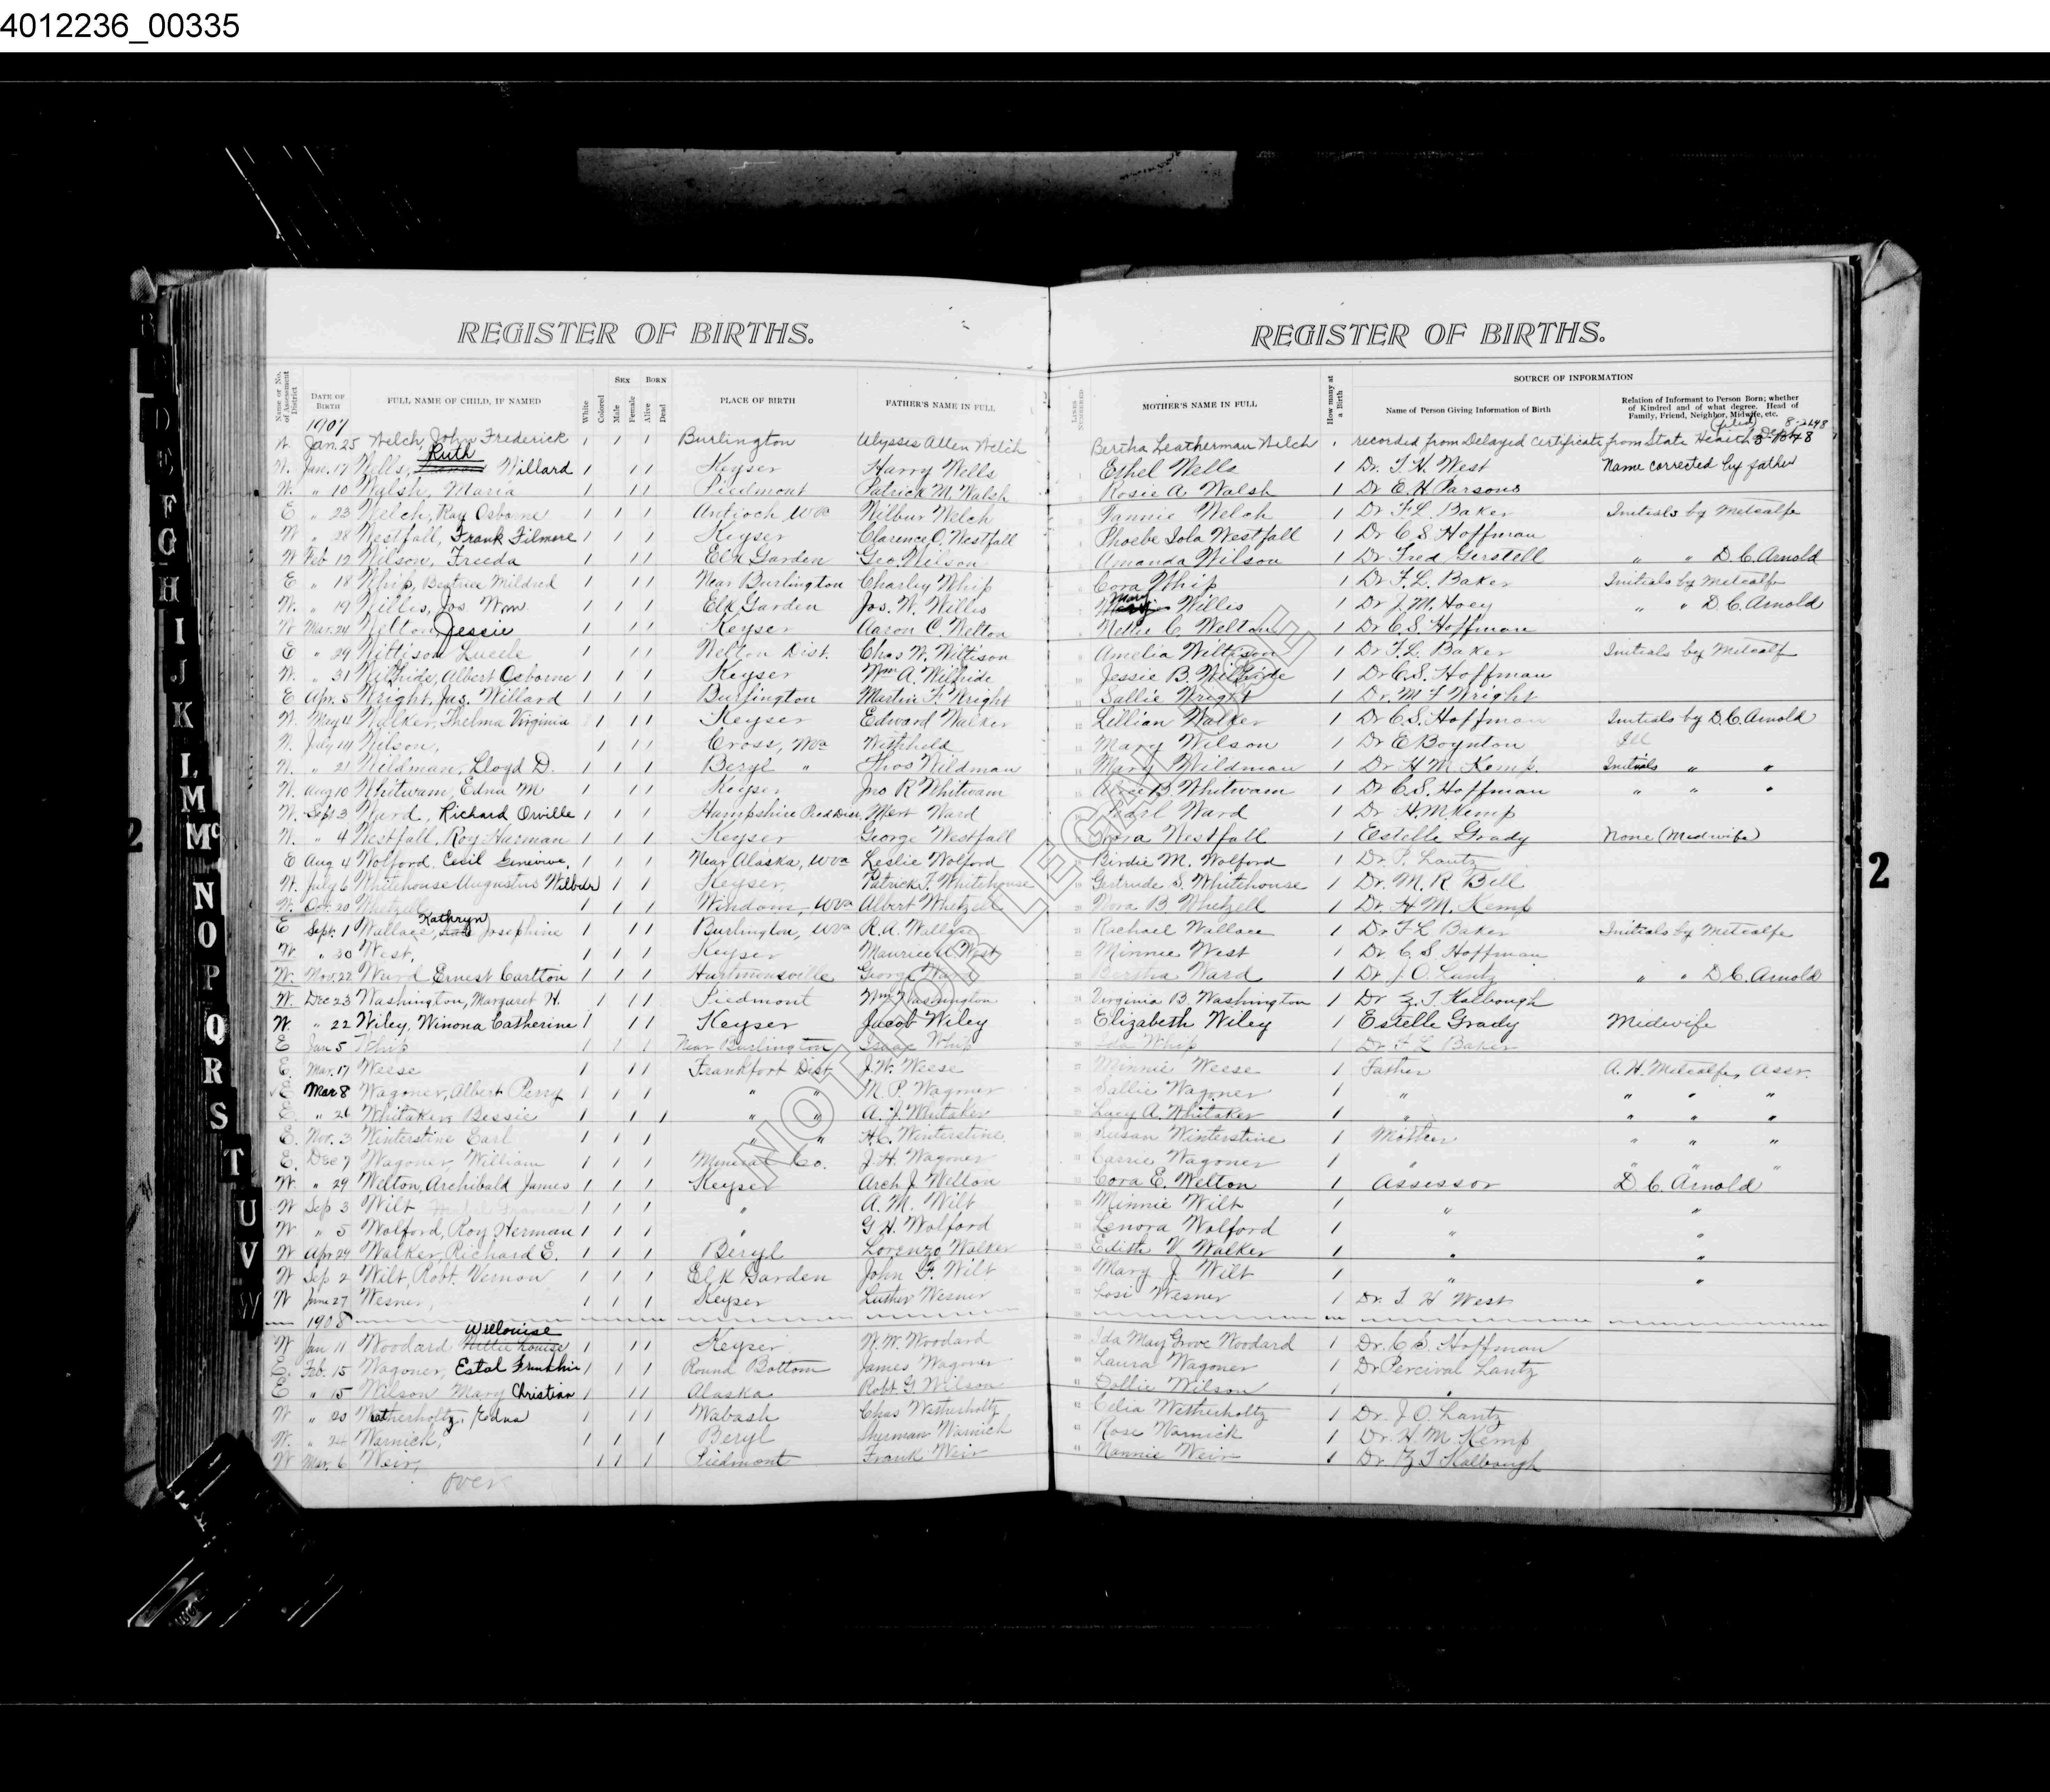 4012236_00335
REGISTER OF BIRTHS.
REGISTER OF BIRTHS.
Name or No. of Assessment District
DATE OF BIRTH
FULL NAME OF CHILD, IF NAMED
White
Colored
SEX
Male
Female
BORN
Alive
Dead
PLACE OF BIRTH
FATHER'S NAME IN FULL
LINES NUMBERED
MOTHER'S NAME IN FULL
How many at a Birth
SOURCE OF INFORMATION
Name of Person Giving Information of Birth
Relation of Informant to Person Born; whether of Kindred and of what degree. Head of Family, Friend, Neighbor, Midwife, etc.
1907
W Jan. 25 Welch, John Frederick 1 1 1 Burlington Ulysses Allen Welch Bertha Leatherman Welch 1 recorded from Delayed Certificate from State Health Dept (filed)
W. Jan. 17 Wells, Ruth Willard 1 1 1 Keyser Harry Wells Ethel Wells 1 Dr. T. H. West Name corrected by father
W. " 10 Walsh, Maria 1 1 1 Piedmont Patrick M. Walsh Rosie A. Walsh 1 Dr E. H Parsons
E " 23 Welch, Ray Osborne 1 1 1 Antioch WVa Wilbur Welch Fannie Welch 1 Dr F L. Baker Initials by Metcalfe
W " 28 Westfall, Frank Filmore 1 1 1 Keyser Clarence O. Westfall Phoebe Iola Westfall 1 Dr C S. Hoffman
W Feb 12 Wilson, Freeda 1 1 1 Elk Garden Geo. Wilson Amanda Wilson 1 Dr Fred Gerstell " " D. C. Arnold
E " 18 Whip, Beatrice Mildred 1 1 1 Near Burlington Charley Whip Cora Whip 1 Dr F. L. Baker Initials by Metcalfe
W. " 19 Willis, Jos. Wm. 1 1 1 Elk Garden Jos. W. Willis Mary Willis 1 Dr J. M. Hoey " " D. C. Arnold
W Mar. 24 Welton, Jessie 1 1 1 Keyser Aaron C. Welton Nettie C. Welton 1 Dr C. S. Hoffman
E " 29 Wittison Lucile 1 1 1 Welton Dist. Chas W. Wittison Amelia Wittison 1 Dr F. L. Baker Initials by Metcalf
W. " 31 Wilhide, Albert Osborne 1 1 1 Keyser Wm A. Wilhide Jessie B. Wilhide 1 Dr C. S. Hoffman
E Apr. 5 Wright, Jas. Willard 1 1 1 Burlington Martin F. Wright Sallie Wright 1 Dr. M F Wright
W. May 4 Walker, Thelma Virginia 1 1 1 Keyser Edward Walker Lillian Walker 1 Dr C. S. Hoffman Initials by D. C. Arnold
W. July 14 Wilson, 1 1 1 Cross, WVa Withheld Mary Wilson 1 Dr E Boynton Ill
W. " 21 Wildman, Lloyd D. 1 1 1 Beryl " Thos Wildman Mary Wildman 1 Dr H M. Kemp. Initials " "
W. Aug 10 Whitwam, Edna M 1 1 1 Keyser Jno R Whitwam B. Whitwam 1 Dr C. S. Hoffman " " "
W. Sept 3 Ward, Richard Orville 1 1 1 Hampshire Mert Ward Pearl Ward 1 Dr H. M. Kemp
W. " 4 Westfall, Roy Harman 1 1 1 Keyser George Westfall Nora Westfall 1 Estelle Grady None (Midwife)
E Aug 4 Wolford, Cecil Genevive, 1 1 1 Near Alaska, WVa Leslie Wolford Birdie M. Wolford 1 Dr. P. Lantz
W. July 6 Whitehouse Augustus Wilbur 1 1 1 Keyser, Patrick F. Whitehouse Gertrude S. Whitehouse 1 Dr. M. R Bell
W. Oct. 20 Whetzell 1 1 1 Windom, WVa Albert Whetzell Nora B Whetzell 1 Dr. H M. Kemp
E Sept. 1 Wallace, Kathryn Josephine 1 1 1 Burlington, WVa R. A. Wallace Rachael Wallace 1 Dr F L Baker Initials by Metcalfe
W. " 30 West, 1 1 1 Keyser Maurice West Minnie West 1 Dr. C. S. Hoffman
W. Nov. 22 Ward Ernest Carlton 1 1 1 Hartmonsville George Ward Bertha Ward 1 Dr. J. O. Lantz " " D. C. Arnold
W. Dec 23 Washington, Margaret H. 1 1 1 Piedmont Wm Washington Virginia B. Washington 1 Dr Z. T. Kalbaugh
W. " 22 Wiley, Winona Catherine 1 1 1 Keyser Jacob Wiley Elizabeth Wiley 1 Estelle Grady Midwife
E Jan 5 Whip 1 1 1 Near Burlington Isaac Whip Ida Whip 1 Dr. F L Baker
E. Mar. 17 Weese 1 1 1 Frankfort Dist J. W. Weese Minnie Weese 1 Father A. H. Metcalfe, Assr.
E. Mar 8 Wagoner, Albert Perry 1 1 1 " " M. P. Wagoner Sallie Wagoner 1 " " " "
E. " 26 Whitaker, Bessie 1 1 1 " " A. J. Whitaker Lucy A. Whitaker 1 " " " "
E. Nov. 3 Winterstine Earl 1 1 1 " " H. C. Winterstine Susan Winterstine 1 Mother " " "
E. Dec 7 Wagoner, William 1 1 1 Mineral Co. J. H. Wagoner Carrie Wagoner 1 " " " "
W. " 29 Welton, Archibald James 1 1 1 Keyser Arch J. Welton Cora E. Welton 1 Assessor D. C. Arnold
W Sep 3 Wilt 1 1 1 " A. M. Wilt Minnie Wilt 1 " "
W " 5 Wolford, Roy Herman 1 1 1 " G H. Wolford Lenora Wolford 1 " "
W Apr 24 Walker, Richard E. 1 1 1 Beryl Lorenzo Walker Edith V Walker 1 " "
W Sep 2 Wilt, Robt. Vernon 1 1 1 Elk Garden John F. Wilt Mary J. Wilt 1 " "
W June 27 Wesner, 1 1 1 Keyser Luther Wesner Wesner 1 Dr. T. H West
1908
W Jan 11 Woodard Willouise 1 1 1 Keyser W. W. Woodard Ida May Grove Woodard 1 Dr. C S. Hoffman
E. Feb. 15 Wagoner, Estal Franklin 1 1 1 Round Bottom James Wagoner Laura Wagoner 1 Dr Percival Lantz
E " 15 Wilson Mary Christian 1 1 1 Alaska Robt G. Wilson Dollie Wilson 1 "
W " 20 Wetherholtz, Edna 1 1 1 Wabash Chas Wetherholtz Celia Wetherholtz 1 Dr. J O. Lantz
W. " 24 Warnick, 1 1 1 Beryl Sherman Warnick Rose Warnick 1 Dr. H. M. Kemp
W Mar. 6 Weir, 1 1 1 Piedmont Frank Weir Nannie Weir 1 Dr. Z T Kalbaugh
over
NOT FOR LEGAL USE
D
E
F
G
H
I
J
K
L
M
Mc
N
O
P
Q
R
S
T
U
V
W
2
2